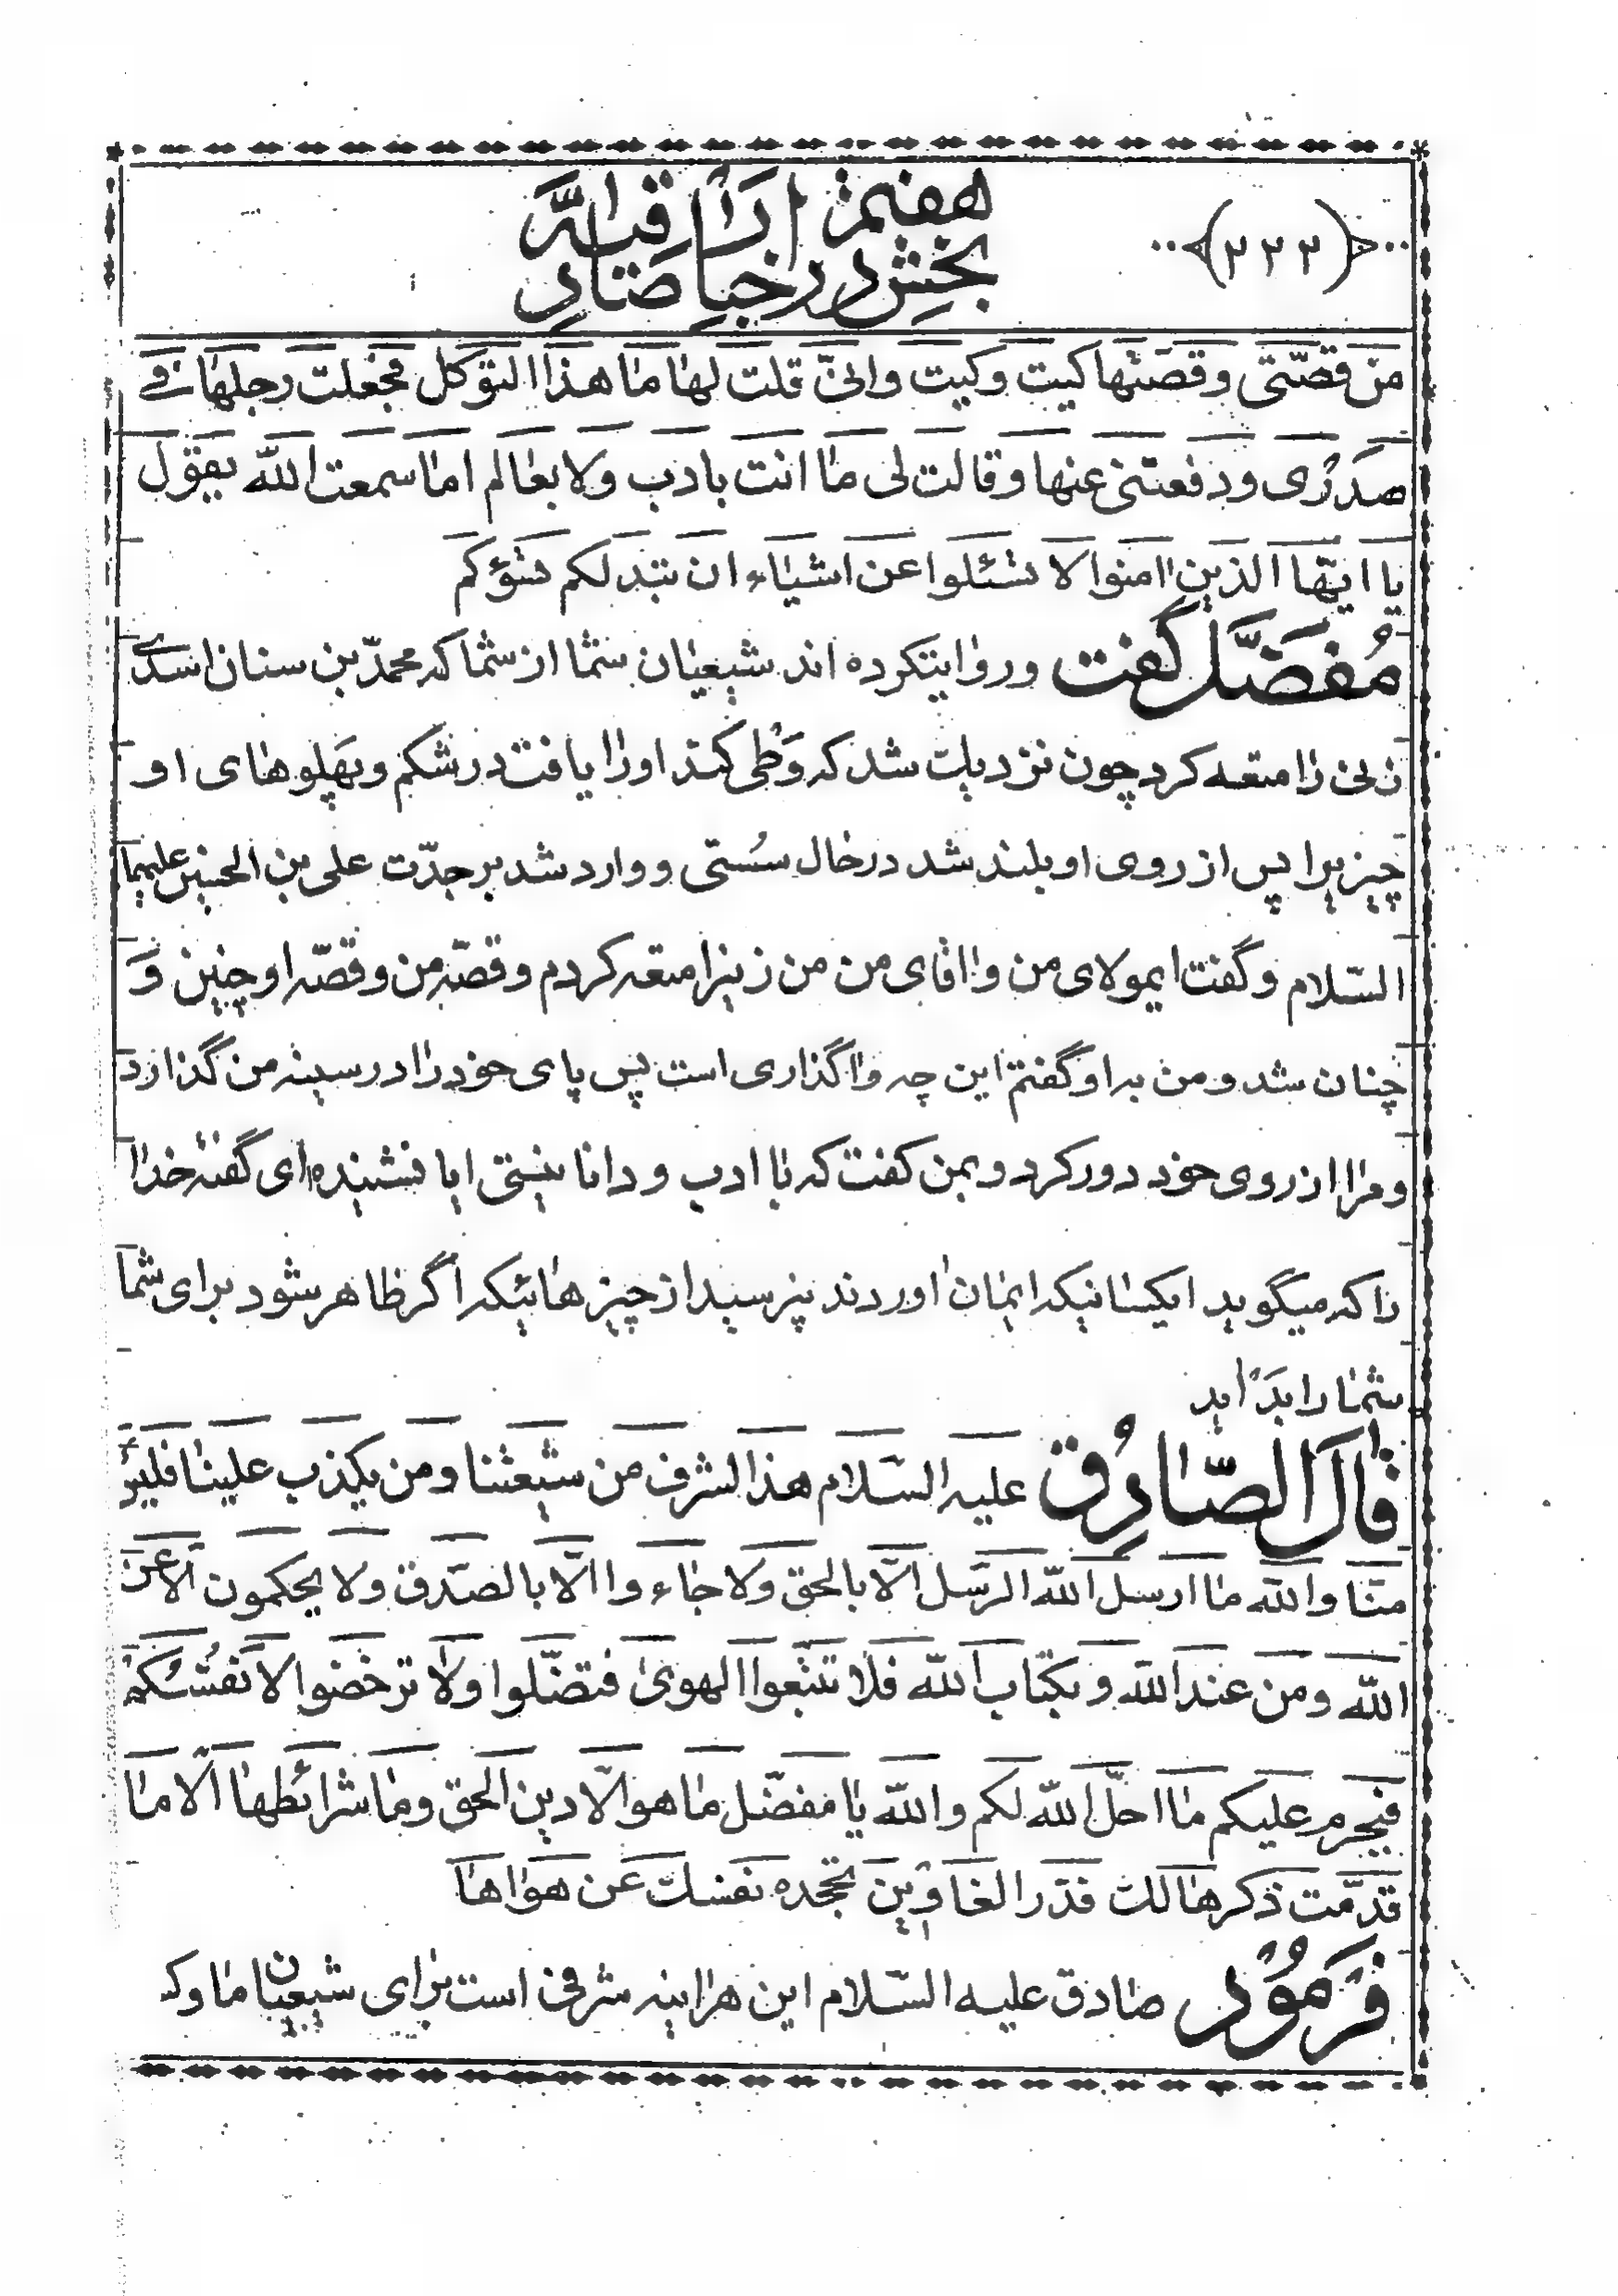 (۲۲۲)
بخش هفتم در اخبار صادقیه
من قصّتی و قصتها کیت و کیت وانّی قلت لها ما هذا التوکل فجعلت رجلها فی
صدری و دفعتنی عنها و قالت لی ما انت بادب ولا بعالم اما سمعت الله یقول
یا ایّها الذین امنوا لا تسئلوا عن اشیاء ان تبدلکم تسؤکم
مُفَضَّل گفت و روایتکرده اند شیعیان شما از شما که محمّد بن سنان اسدی
زنی را متعه کرد چون نزدیک شد که وَطی کند او را یافت در شکم و پهلوهای او
چیزیرا پس از روی او بلند شد در حال سُستی و وارد شد بر جدّت علی بن الحسین علیهما
السّلام و گفت ایمولای من و اقای من من زنیرا متعه کردم و قصّه من و قصّه او چنین وَ
چنان شد و من به او گفتم این چه واگذاری است پس پای خود را در سینه من گذارد
و مرا از روی خود دور کرد و بمن گفت که با ادب و دانا نیستی ایا نشنیده ای گفته خدا
را که میگوید ایکسانیکه ایمان اوردند نپرسید از چیزهائیکه اگر ظاهر شود برای شما
شما را بَدْ اید
قالَ الصّادِقُ علیه السّلام هذا لشرف من شیعتنا و من یکذب علینا فلیس
منّا والله ما ارسل الله الرّسل الّا بالحق وَلا جاءوا الّا بالصّدق ولا یحکمون الّا عن
الله و من عند الله و بکتاب الله فلا تتّبعوا الهوی فتضّلوا ولا ترخّصوا لانفسُکم
فیحرم علیکم ما احلّ الله لکم والله یا مفضّل ما هو الّا دین الحق وما شرائطها الّا ما
قدّمت ذکرها لک فذر الغاوین تجحده نفسک عن هواها
فَرمُود صادق علیه السّلام این هراینه شرفی است برای شیعیان ما و که